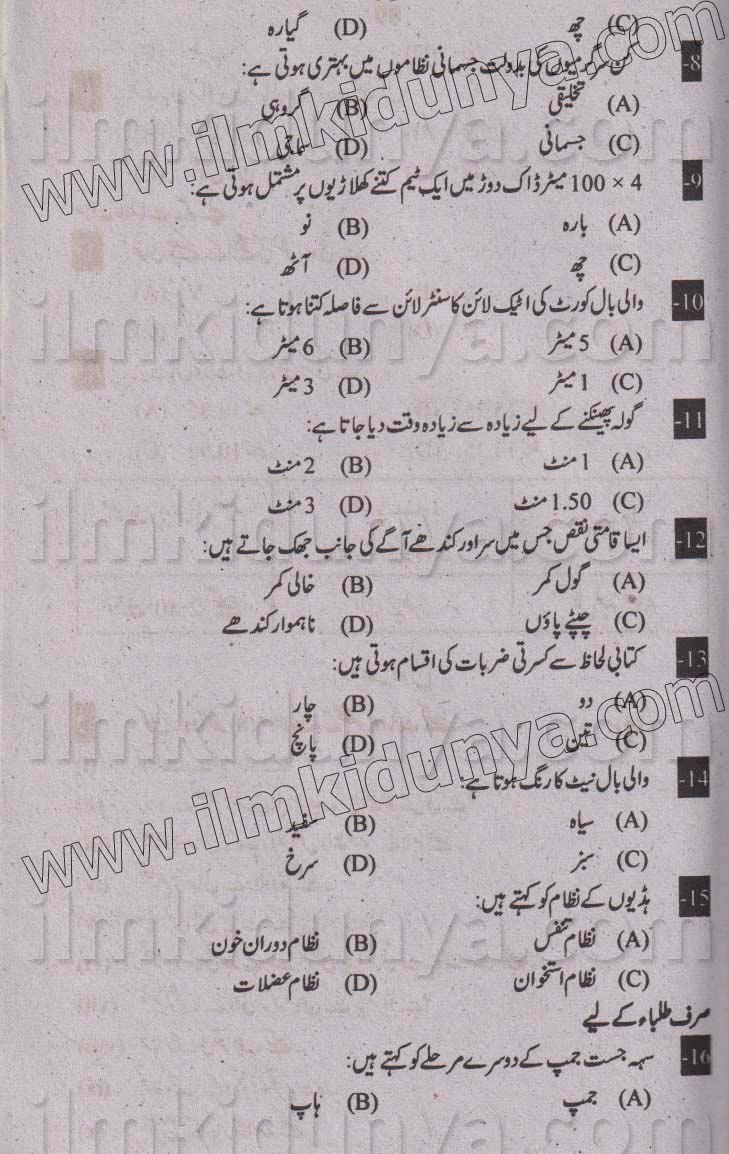 (C) چھ (D) گیارہ
-8 کن سرگرمیوں کی بدولت جسمانی نظاموں میں بہتری ہوتی ہے:
(A) تخلیقی (B) گروہی
(C) جسمانی (D) سماجی
-9 4 × 100 میٹر ڈاک دوڑ میں ایک ٹیم کتنے کھلاڑیوں پر مشتمل ہوتی ہے:
(A) بارہ (B) نو
(C) چھ (D) آٹھ
-10 والی بال کورٹ کی اٹیک لائن کا سنٹر لائن سے فاصلہ کتنا ہوتا ہے:
(A) 5 میٹر (B) 6 میٹر
(C) 1 میٹر (D) 3 میٹر
-11 گولہ پھینکنے کے لیے زیادہ سے زیادہ وقت دیا جاتا ہے:
(A) 1 منٹ (B) 2 منٹ
(C) 1.50 منٹ (D) 3 منٹ
-12 ایسا قامتی نقص جس میں سر اور کندھے آگے کی جانب جھک جاتے ہیں:
(A) گول کمر (B) خالی کمر
(C) چپٹے پاؤں (D) ناہموار کندھے
-13 کتابی لحاظ سے کسرتی ضربات کی اقسام ہوتی ہیں:
(A) دو (B) چار
(C) تین (D) پانچ
-14 والی بال نیٹ کا رنگ ہوتا ہے:
(A) سیاہ (B) سفید
(C) سبز (D) سرخ
-15 ہڈیوں کے نظام کو کہتے ہیں:
(A) نظام تنفس (B) نظام دوران خون
(C) نظام استخوان (D) نظام عضلات
صرف طلباء کے لیے
-16 سہہ جست جمپ کے دوسرے مرحلے کو کہتے ہیں:
(A) جمپ (B) ہاپ
www.ilmkidunya.com
www.ilmkidunya.com
ilmkidunya.com
ilmkidunya.com
ilmkidunya.com
ilmkidunya.com
ilmkidunya.com
ilmkidunya.com